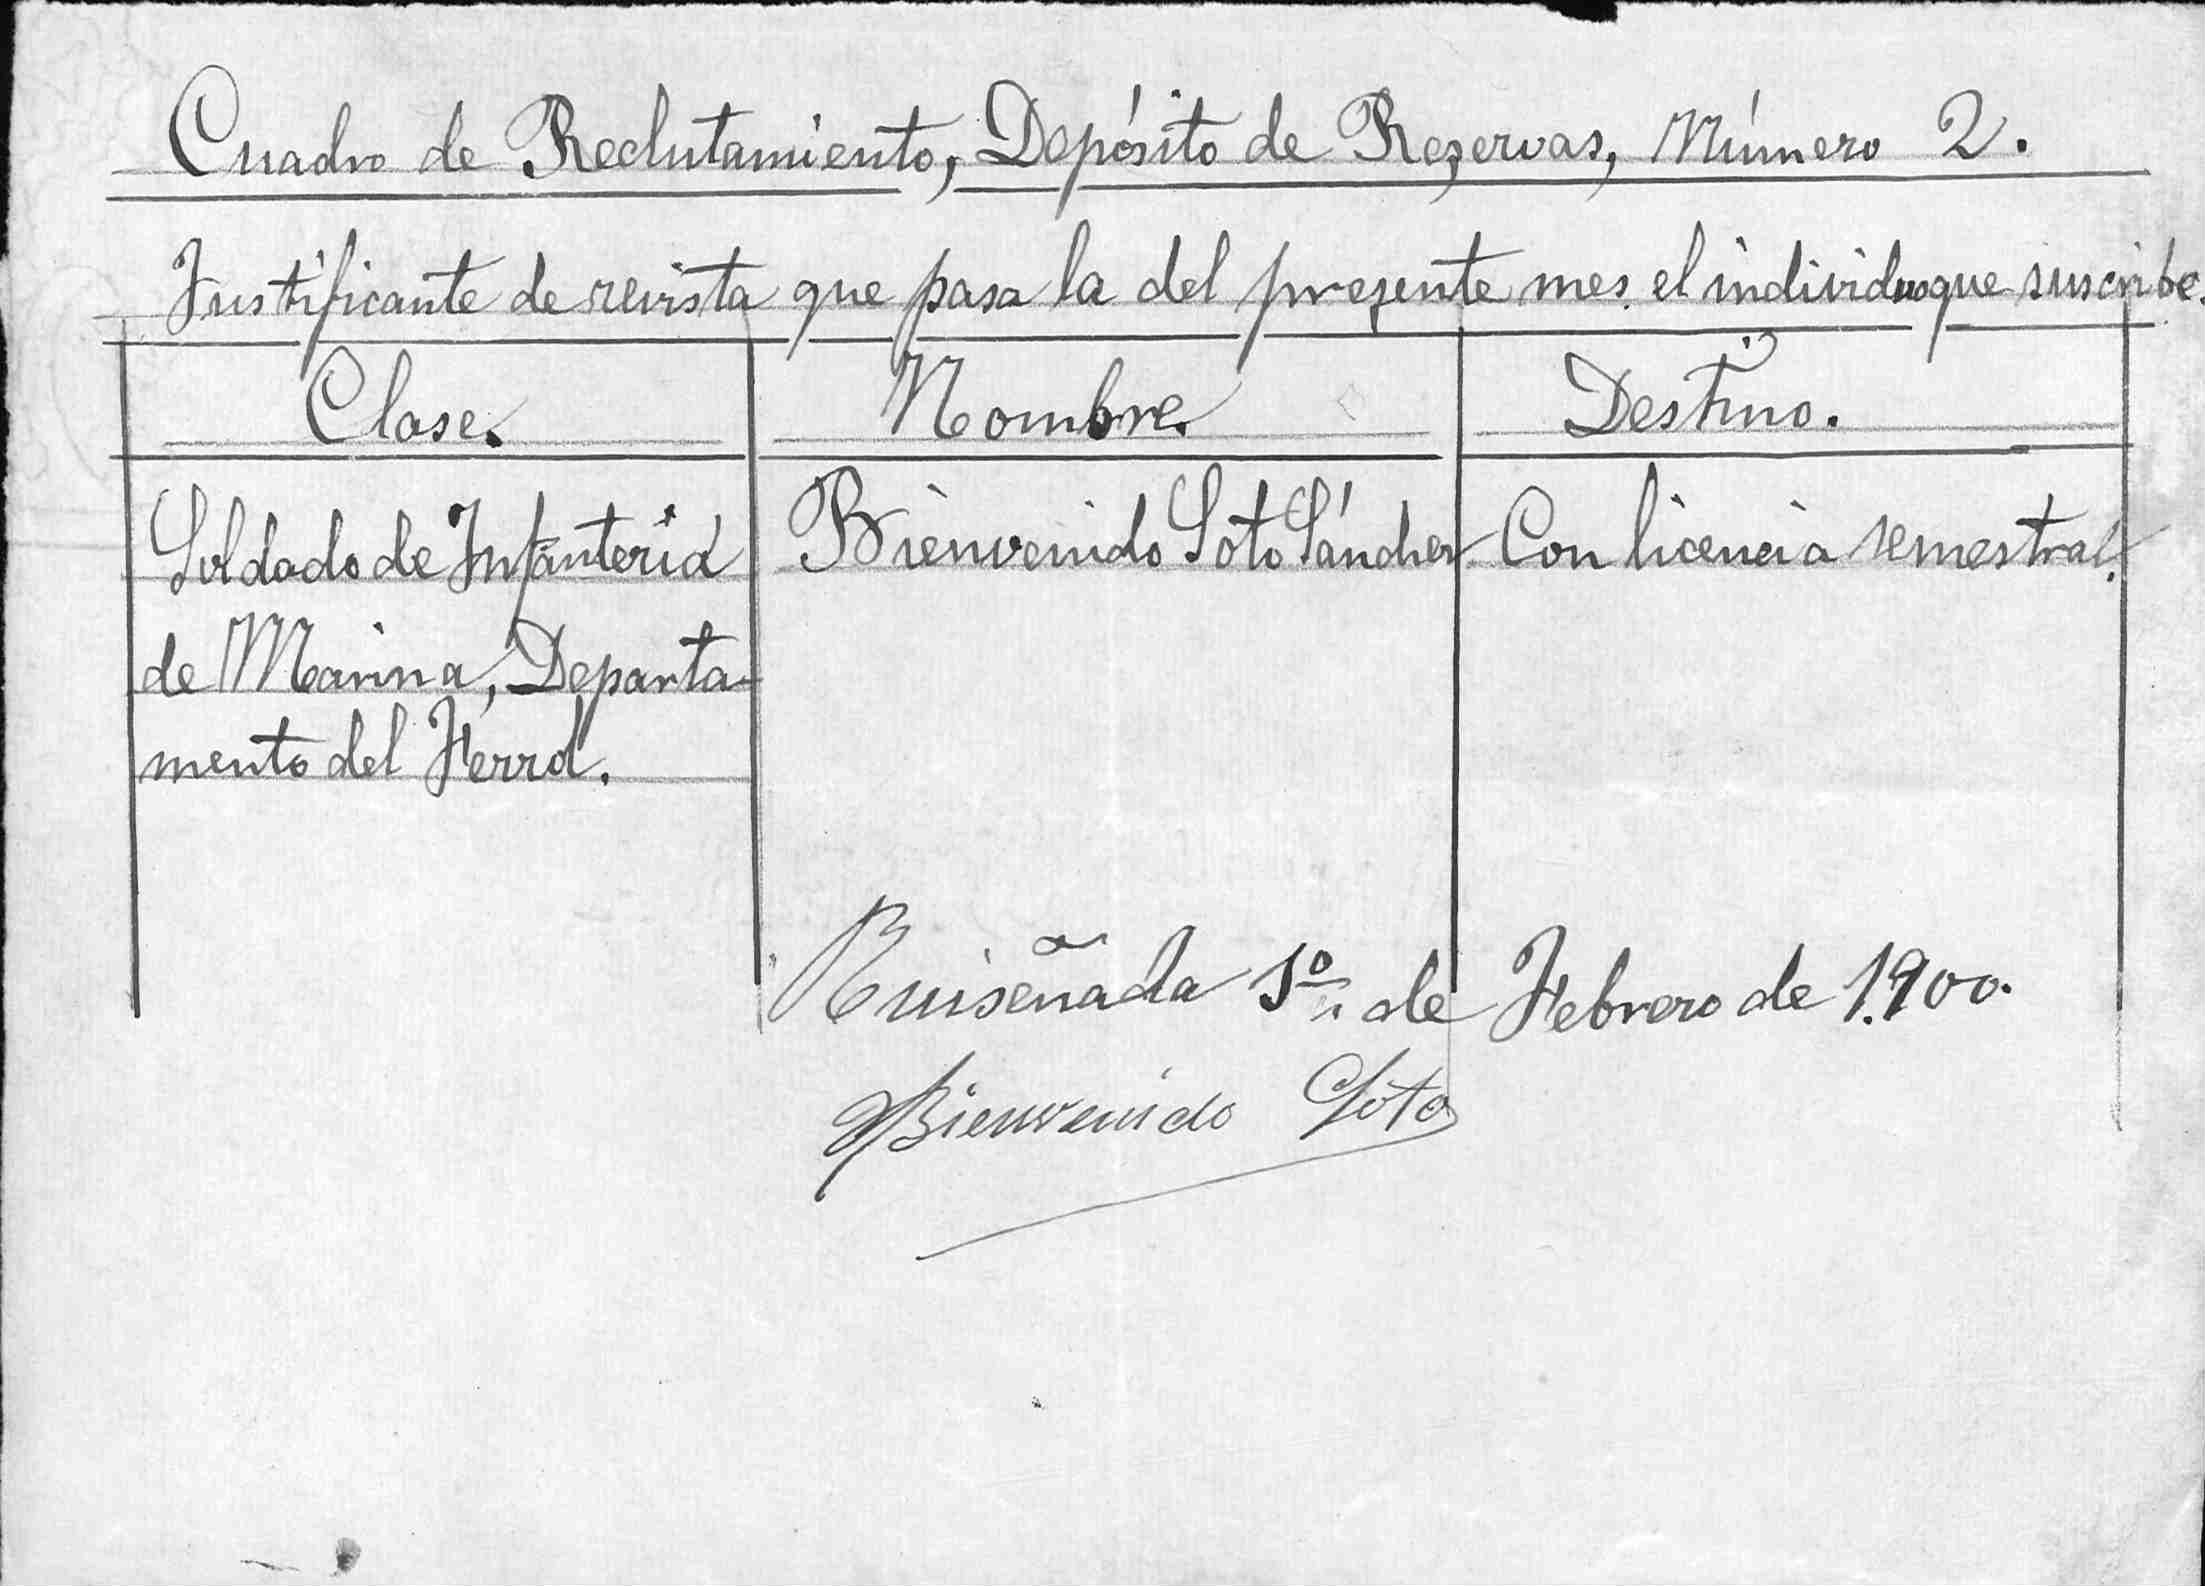 Cuadro de Reclutamiento, Depósito de Reservas, Número 2.
Justificante de revista que pasa la del presente mes el individuo que suscribe.
Clase. Nombre. Destino.
Soldado de Infantería Bienvenido Soto Sánchez Con licencia semestral.
de Marina, Departa-
mento del Ferrol.
Ruiseñada 1º de Febrero de 1.900.
Bienvenido Soto